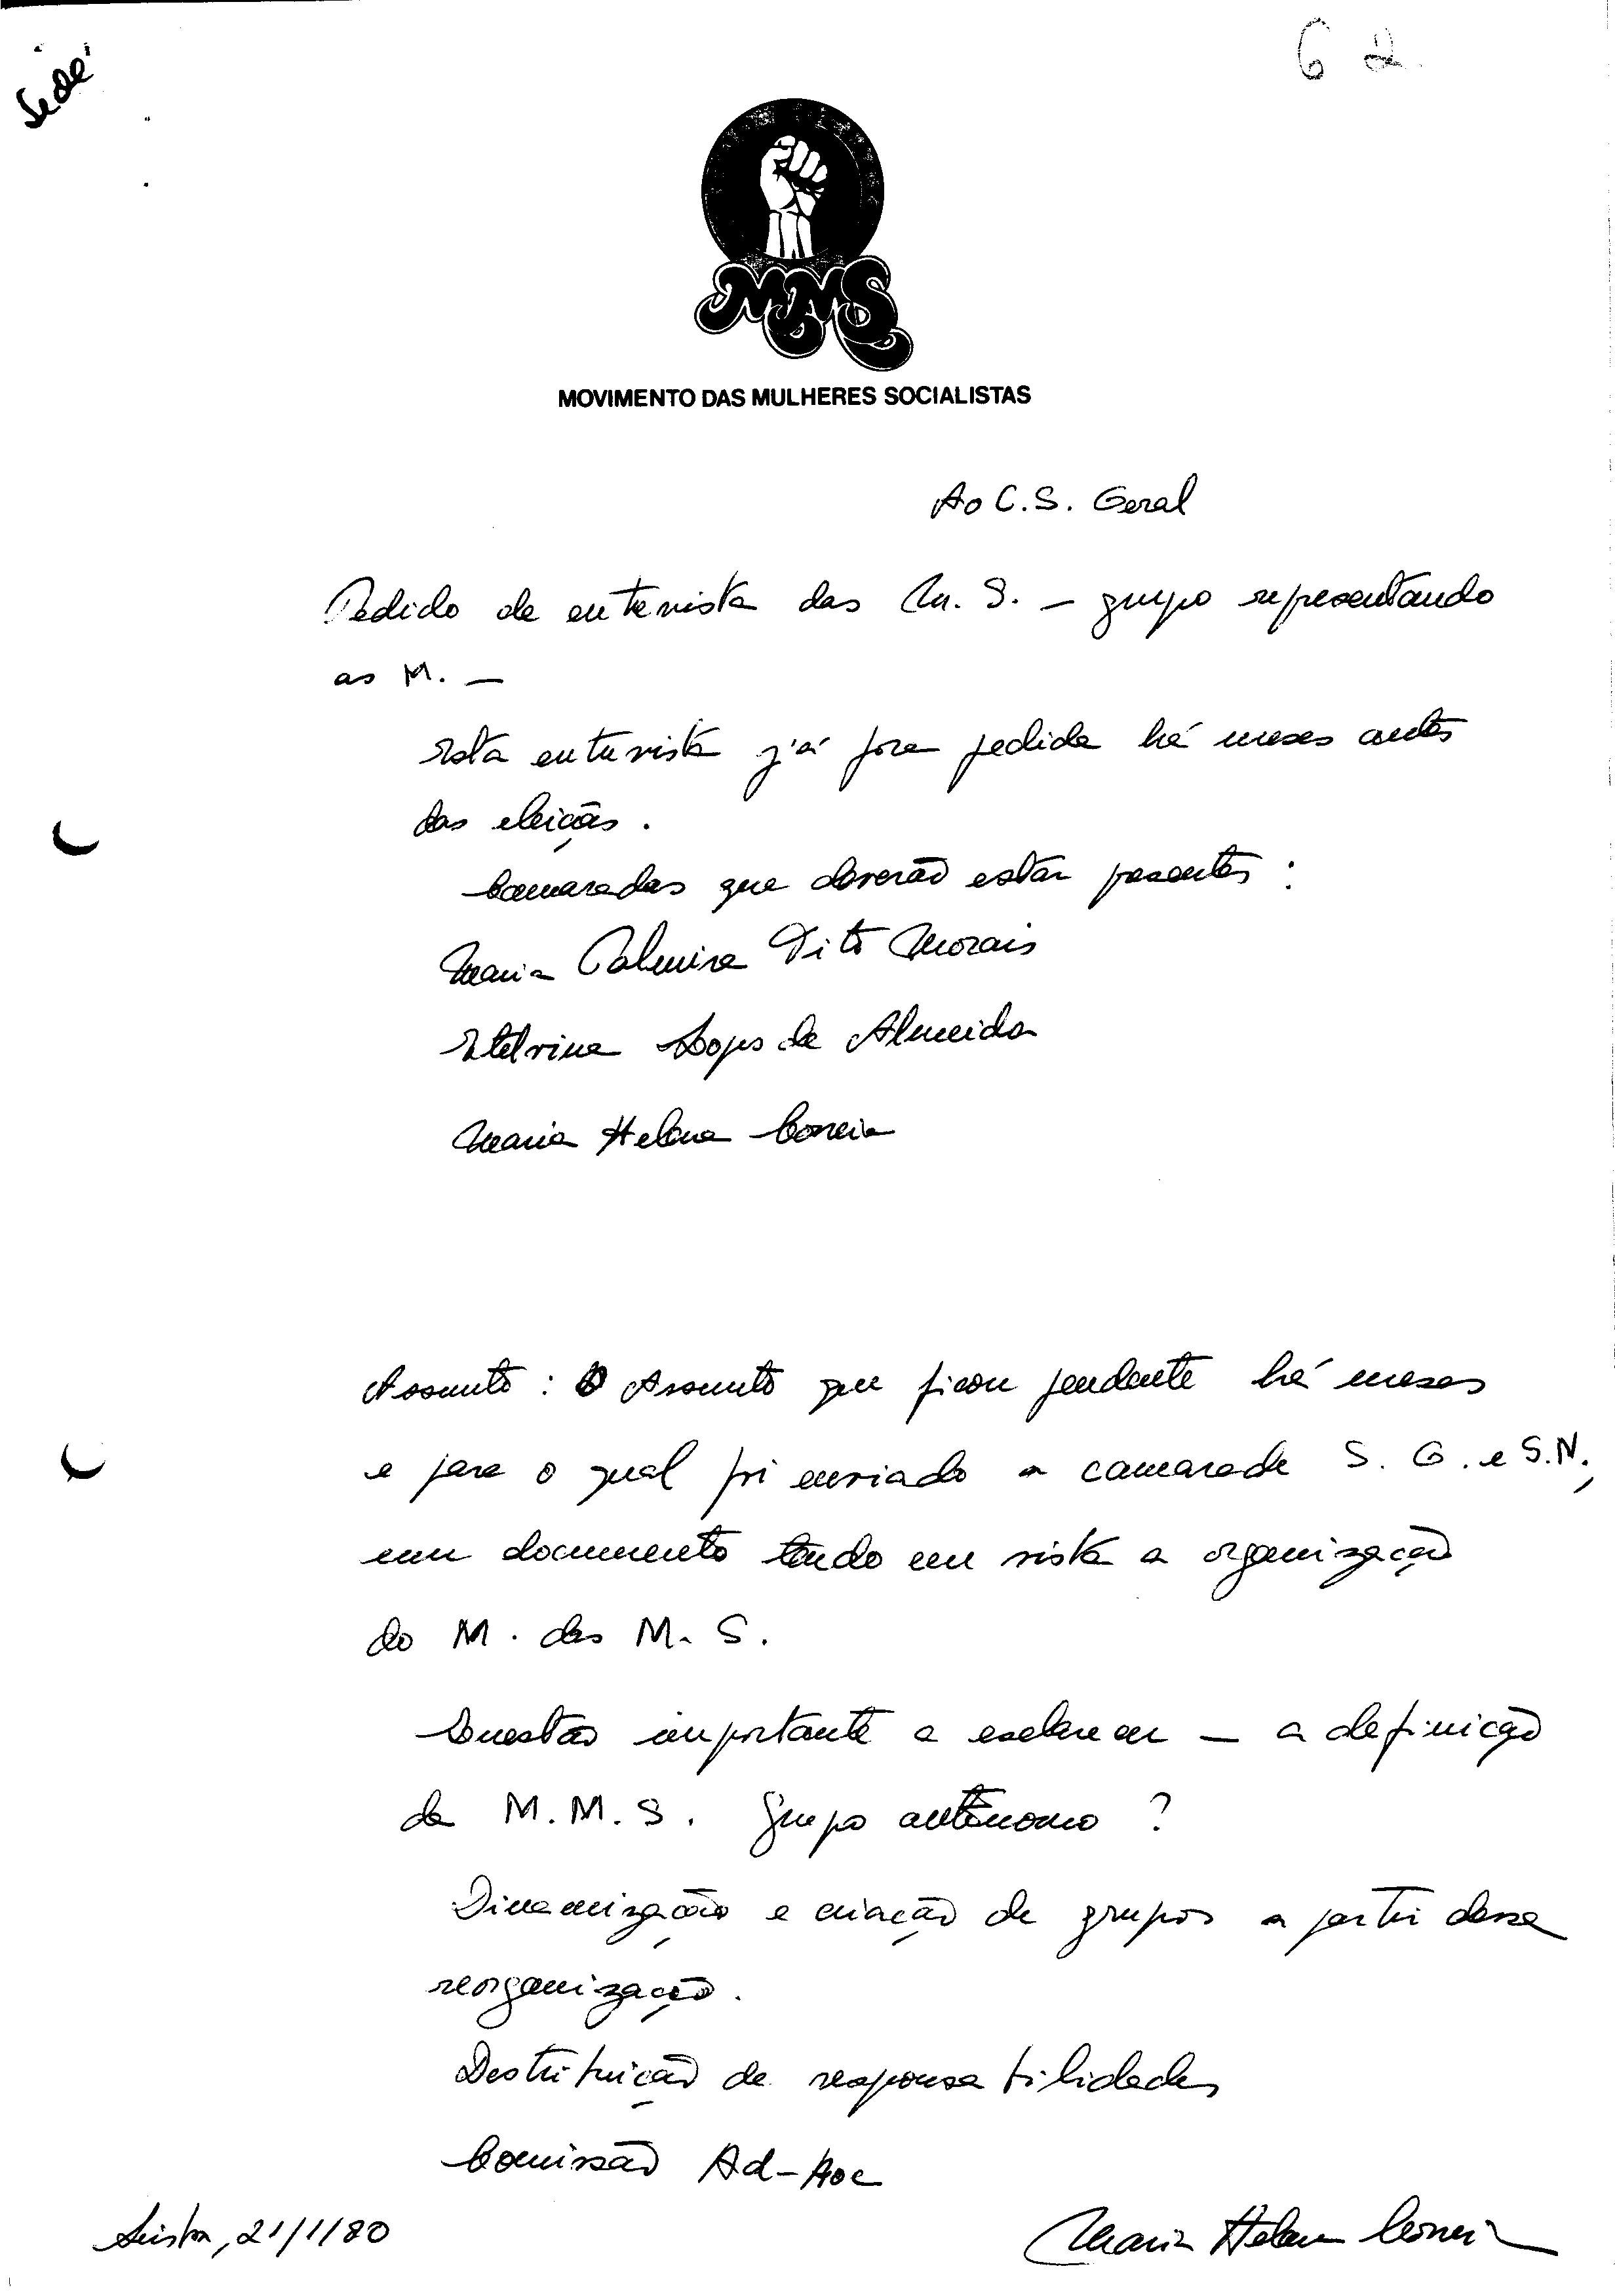 Sede
6 2.
MMS
MOVIMENTO DAS MULHERES SOCIALISTAS
Ao C.S. Geral
Pedido de entrevista das M. S. — grupo representando
as M. —
Esta entrevista já fora pedida há meses antes
das eleições.
Camaradas que deverão estar presentes :
Maria Palmira Tito Morais
Etelvina Lopes de Almeida
Maria Helena Correia
Assunto : O Assunto que ficou pendente há meses
e para o qual foi enviado a camarada S. G. e S.N.,
um documento tendo em vista a organização
do M. das M. S.
Questão importante a esclarecer — a definição
de M.M.S. Grupo autónomo ?
Dinamização e criação de grupos a partir dessa
reorganização.
Destribuição de responsabilidades
Comissão Ad-Hoc
Lisboa, 21/1/80
Maria Helena Correia